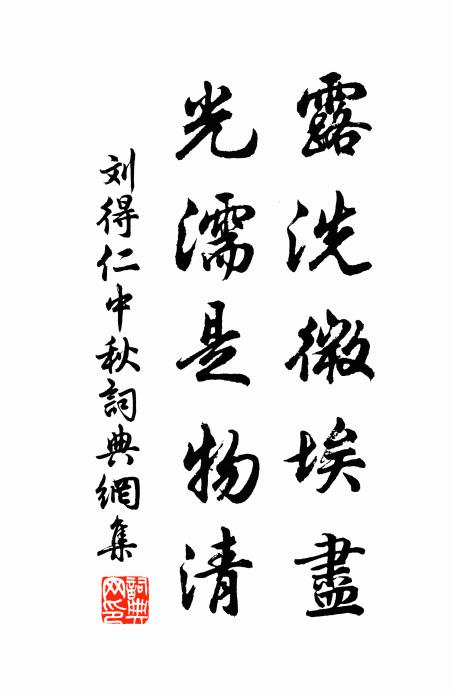 露洗微埃盡
光濡是物清
刘得仁中秋詞典網集
詞典
网印